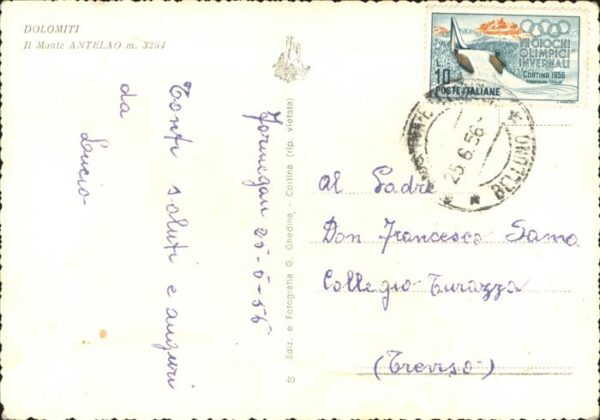 DOLOMITI
Il Monte ANTELAO m. 3264
Tonti saluti e auguri
da
Lucio
25-6-56
Ediz. e Fotografia G. Ghedina - Cortina (rip. vietata)
40
VII GIOCHI
OLIMPICI
INVERNALI
CORTINA 1956
L. 10
POSTE ITALIANE
25.6.56
BELLUNO
Al Padre
Don Francesco Samo
Collegio Turazza
(Treviso)